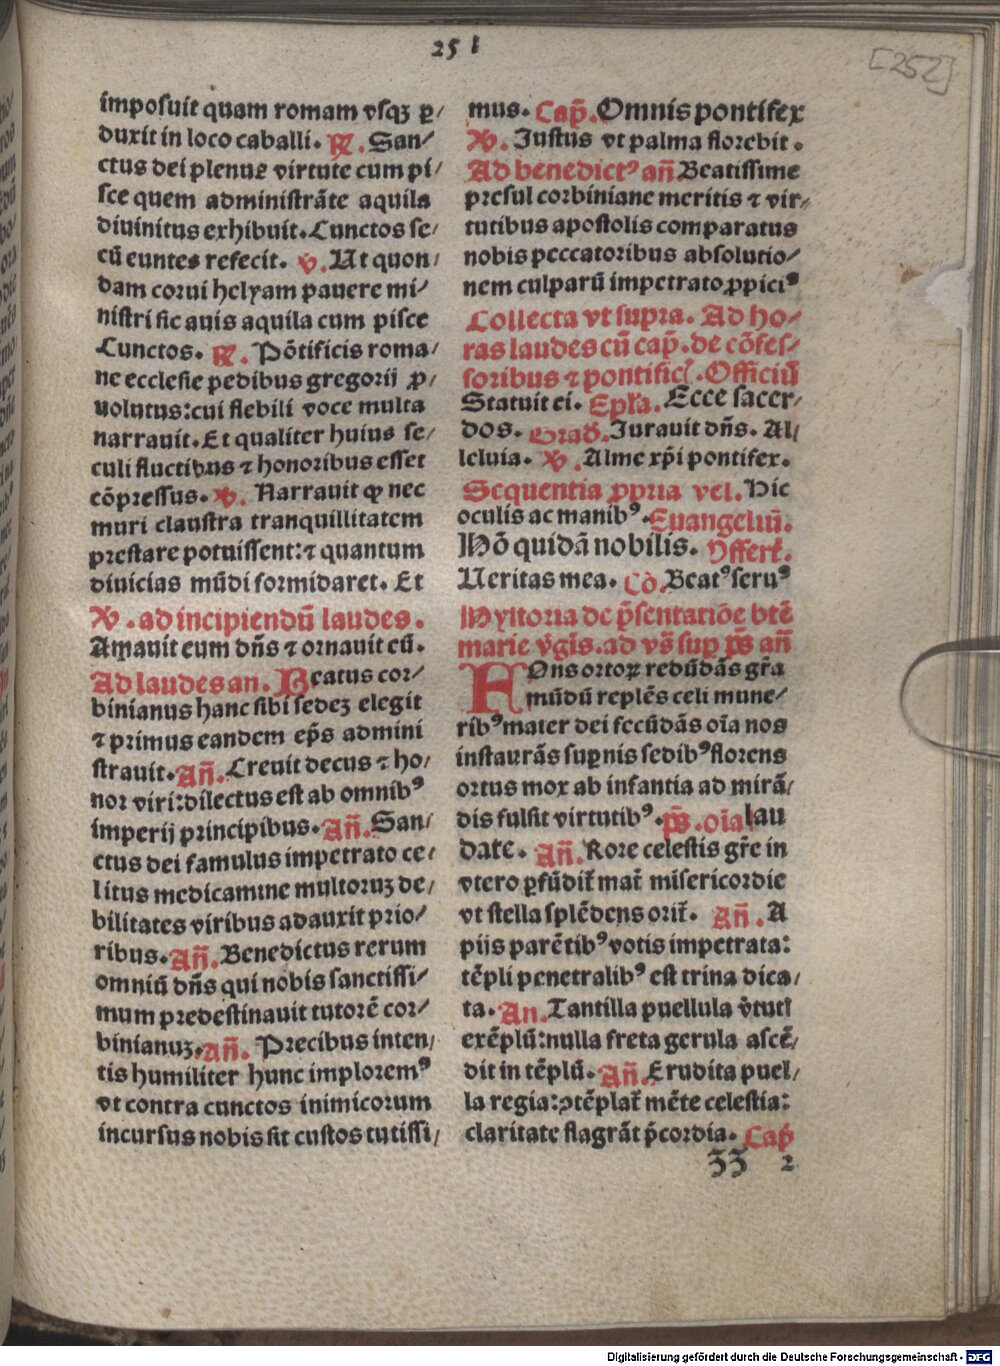 251
[252]
imposuit quam romam vsqꝫ ꝑ/
duxit in loco caballi. ℟. San/
ctus dei plenus virtute cum pi/
sce quem administrāte aquila
diuinitus exhibuit. Cunctos se/
cū euntes refecit. ℣. Ut quon/
dam corui helyam pauere mi/
nistri sic auis aquila cum pisce
Cunctos. ℟. Pōtificis roma/
ne ecclesie pedibus gregorii ꝓ/
uolutus: cui flebili voce multa
narrauit. Et qualiter huius se/
culi fluctibus ⁊ honoribus esset
cōpressus. ℣. Narrauit ꝙ nec
muri claustra tranquillitatem
prestare potuissent: ⁊ quantum
diuicias mūdi formidaret. Et
℣. ad incipiendū laudes.
Amauit eum dn̄s ⁊ ornauit eū.
Ad laudes an. Beatus cor/
binianus hanc sibi sedeꝫ elegit
⁊ primus eandem ep̄s admini
strauit. Añ. Creuit decus ⁊ ho/
nor viri: dilectus est ab omnibꝰ
imperij principibus. Añ. San/
ctus dei famulus impetrato ce/
litus medicamine multoruꝫ de/
bilitates viribus adauxit prio/
ribus. Añ. Benedictus rerum
omniū dn̄s qui nobis sanctissi/
mum predestinauit tutorē cor/
binianuꝫ. añ. Precibus inten/
tis humiliter hunc imploremꝰ
vt contra cunctos inimicorum
incursus nobis sit custos tutissi/
mus. Cap̄. Omnis pontifex
℣. Justus vt palma florebit.
Ad benedictꝰ añ. Beatissime
presul corbiniane meritis ⁊ vir/
tutibus apostolis comparatus
nobis peccatoribus absolutio/
nem culparū impetrato ꝓpiciꝰ
Collecta vt supra. Ad ho/
ras laudes cū cap̄. de cōfes/
soribus ⁊ pontific̄. Officiū
Statuit ei. Epl̄a. Ecce sacer/
dos. Grad̄. Jurauit dn̄s. Al/
leluia. ℣. Alme xp̄i pontifex.
Sequentia ꝓpria vel. Hic
oculis ac manibꝰ. Euangeliū.
Hō quidā nobilis. Offert̄.
Ueritas mea. Cō. Beatꝰ seruꝰ
Hystoria de p̄sentatiōe btē
marie v̄gīs. ad vs̄ sup̄ ps̄ añ
FOns ortoꝝ redūdās gr̄a
mūdū replēs celi mune/
ribꝰ mater dei fecūdās oīa nos
instaurās suꝑnis sedibꝰ florens
ortus mox ab infantia ad mirā/
dis fulsit virtutibꝰ. ps̄. oīa lau
date. Añ. Rore celestis gr̄e in
vtero ꝑfūdit̄ mat̄ misericordie
vt stella splēdens orit̄. Añ. A
piis parētibꝰ votis impetrata:
tēpli penetralibꝰ est trina dica/
ta. An. Tantilla puellula v̄tutī
exēplū: nulla freta gerula ascē/
dit in tēplū. Añ. Erudita puel/
la regia: ꝯtēplat̄ mēte celestia:
claritate flagrāt p̄cordia. Cap̄
ZZ 2
Digitalisierung gefördert durch die Deutsche Forschungsgemeinschaft - DFG